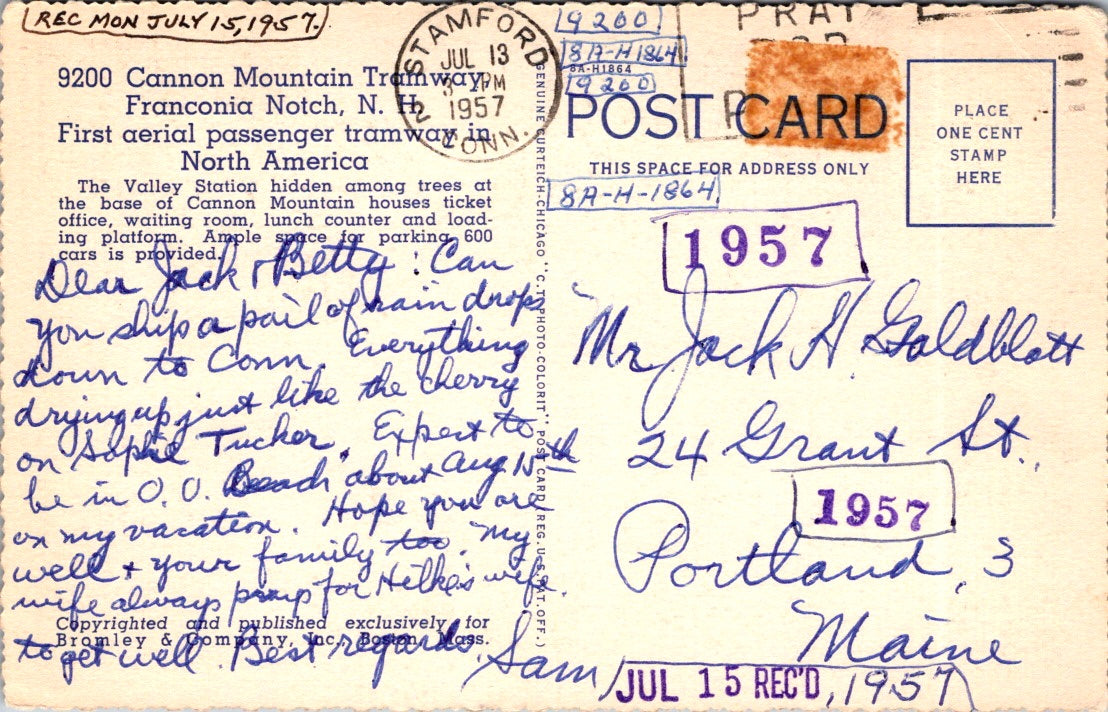 REC MON JULY 15, 1957.
9200 Cannon Mountain Tramway,
Franconia Notch, N. H.
First aerial passenger tramway in
North America
The Valley Station hidden among trees at
the base of Cannon Mountain houses ticket
office, waiting room, lunch counter and load-
ing platform. Ample space for parking 600
cars is provided.
Dear Jack & Betty: Can
you ship a pail of rain drops
down to Conn. Everything
drying up just like the cherry
on Sophie Tucker. Expect to
be in O. O. Beach about Aug 15th
on my vacation. Hope you are
well & your family too. My
wife always prays for wife.
to get well. Best regards. Sam
Copyrighted and published exclusively for
Bromley & Company, Inc., Boston, Mass.
STAMFORD
JUL 13
PM
1957
2 CONN.
GENUINE CURTEICH-CHICAGO "C.T. PHOTO-COLORIT" POST CARD (REG. U.S. PAT. OFF.)
9200
8A-H1864
8A-H1864
9200
PRAY
POST CARD
THIS SPACE FOR ADDRESS ONLY
8A-H-1864
PLACE
ONE CENT
STAMP
HERE
1957
Mr. Jack H. Goldblatt
24 Grant St.,
1957
Portland, 3
Maine
JUL 15 REC'D, 1957